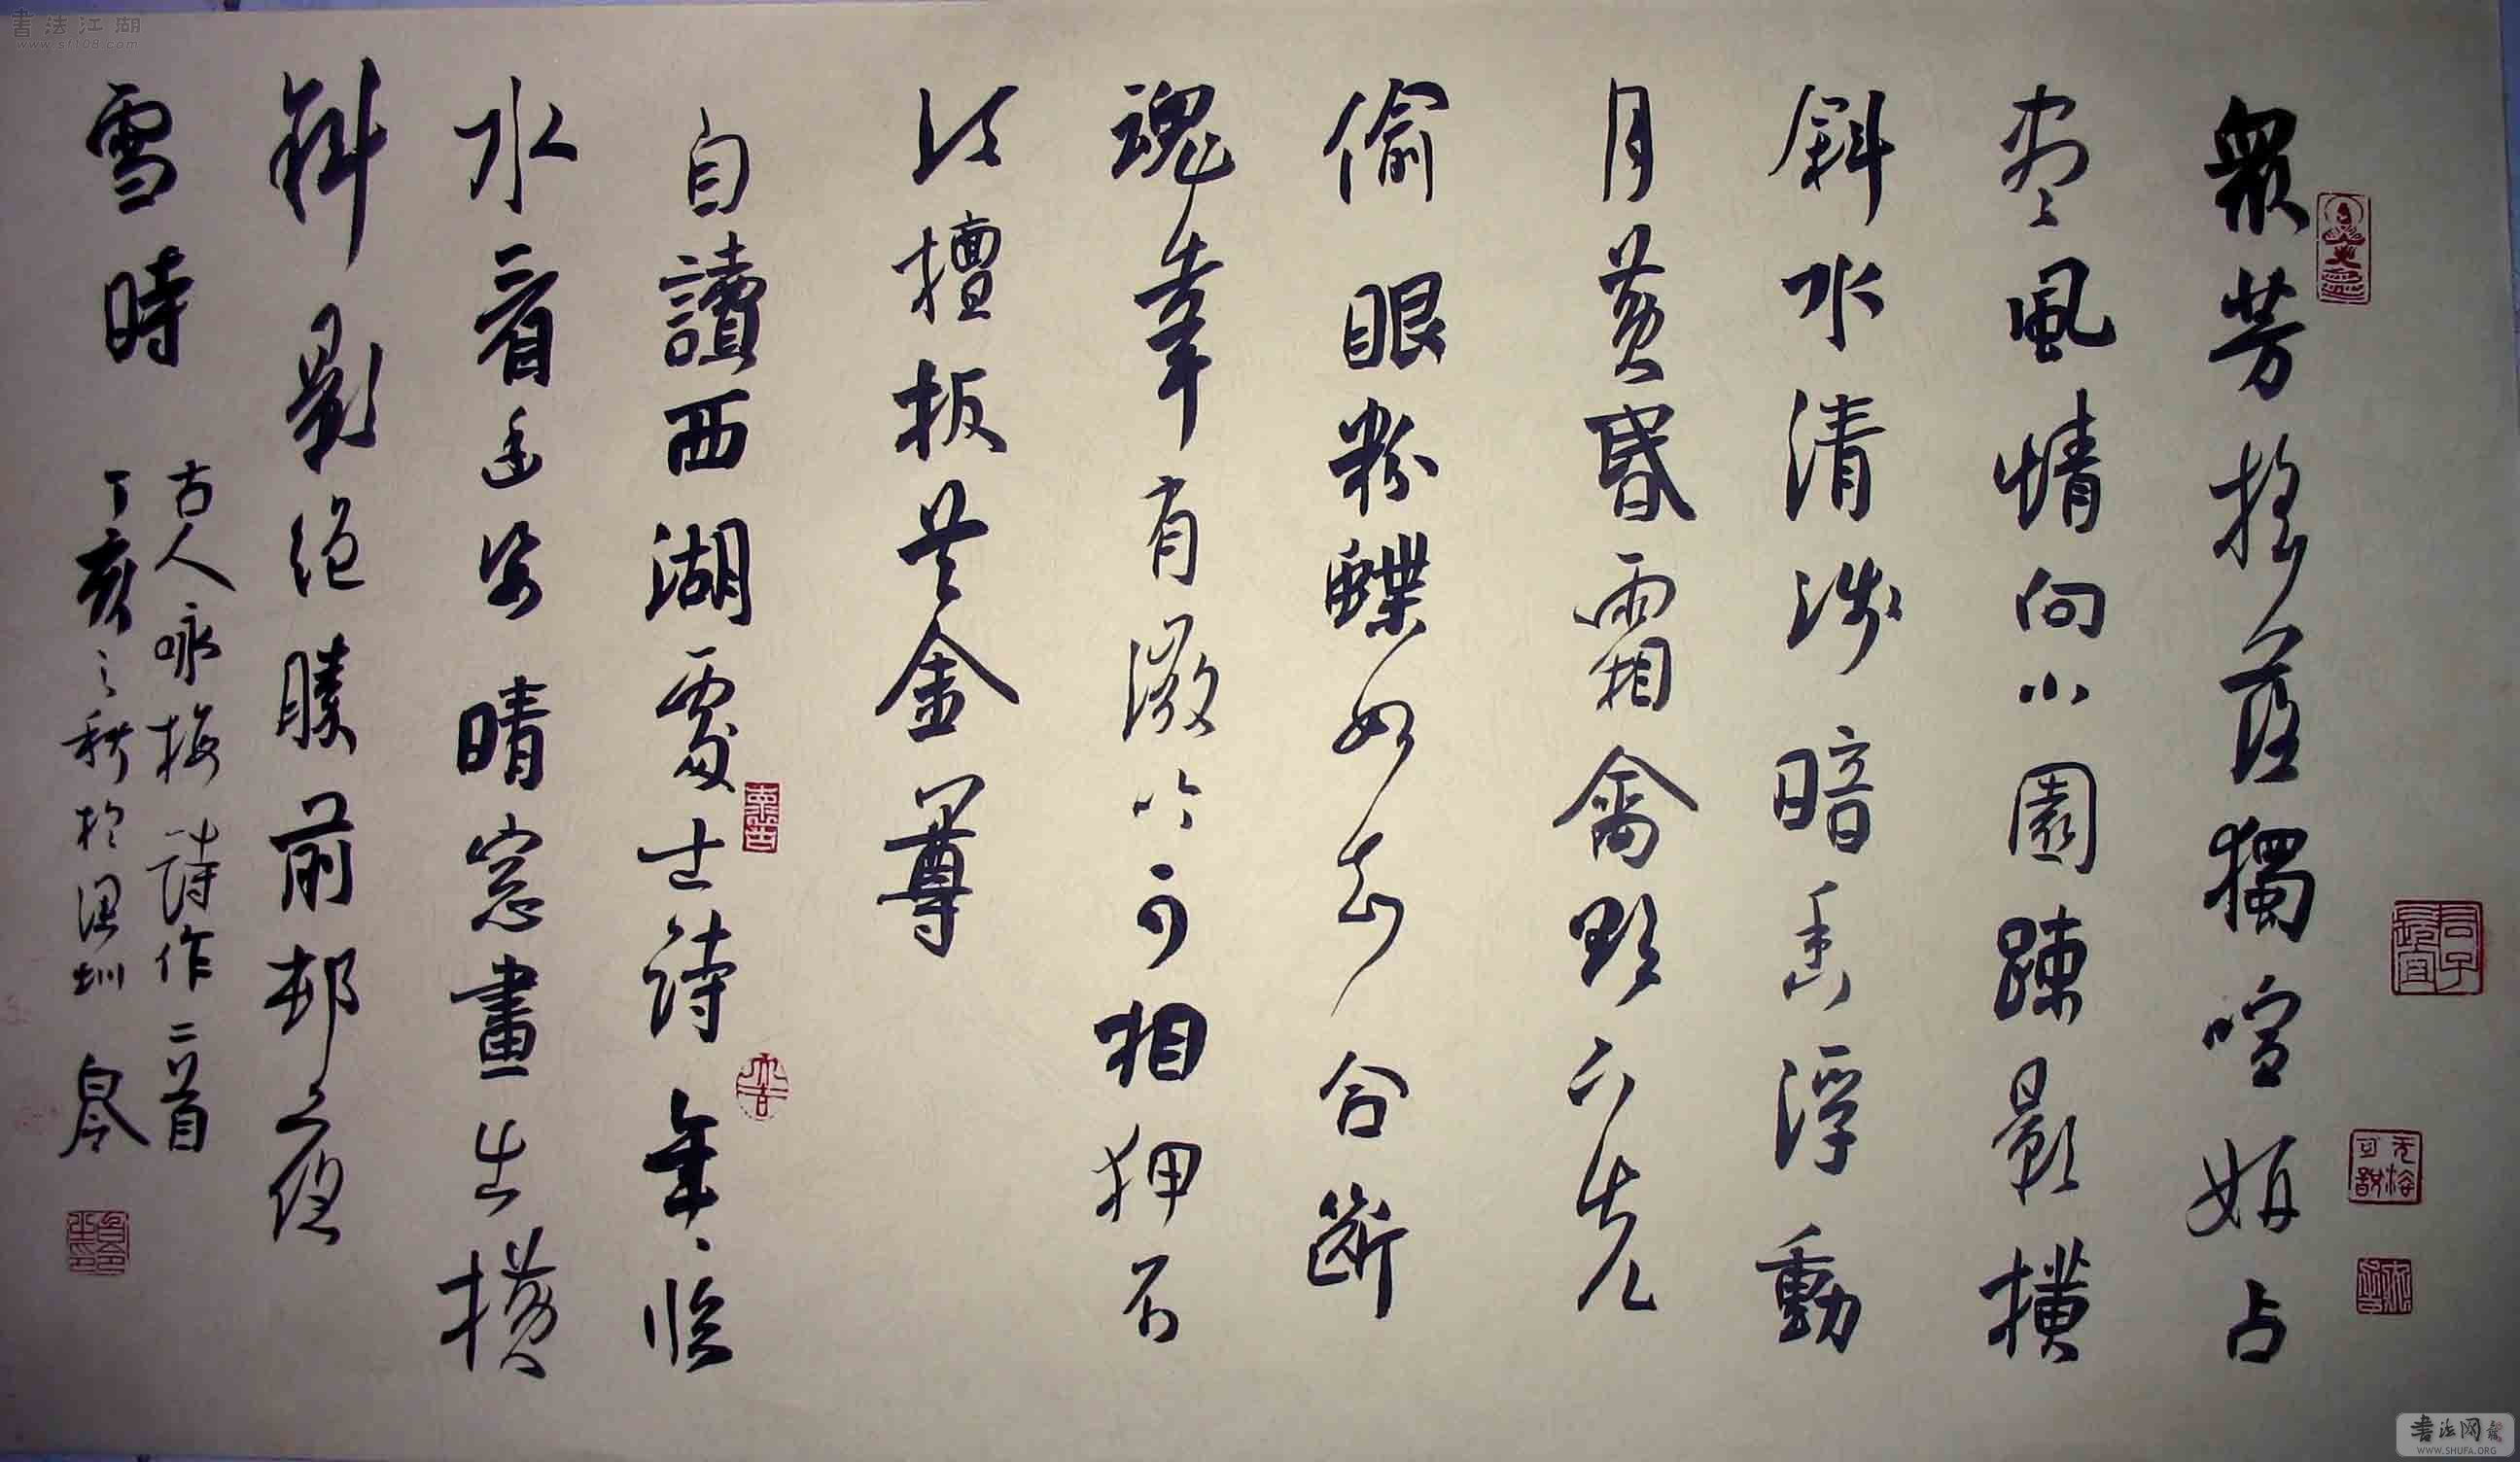 眾芳搖落獨喧妍占
尽風情向小園疎影橫
斜水清浅暗香浮動
月黄昏霜禽欲下先
偷眼粉蝶如知合斷
魂幸有微吟可相狎不
須檀板共金尊
自讀西湖處士詩年々臨
水看幽姿晴窓畫出橫
斜影绝勝前邨夜
雪時
古人咏梅詩作二首
丁亥之秋於深圳
書法江湖
www.sf108.com
書法网
WWW.SHUFA.ORG